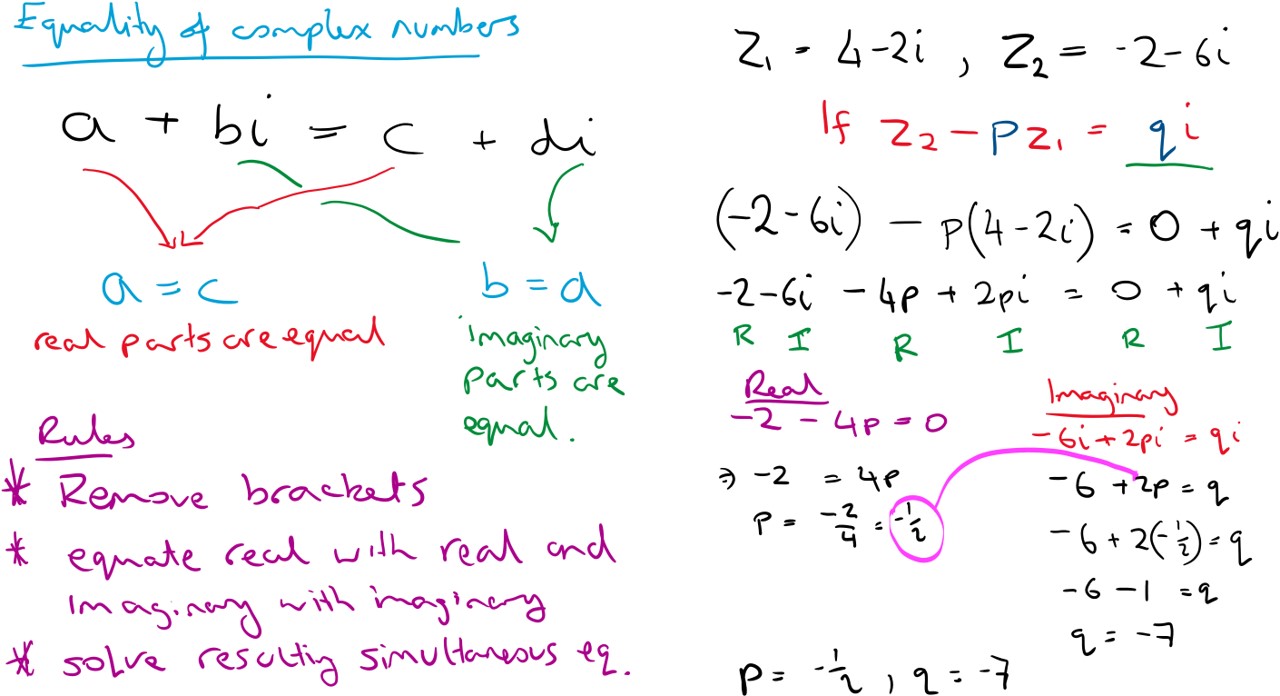 Equality of complex numbers
a + bi = c + di
a = c
b = d
real parts are equal
imaginary
parts are
equal.
Rules
* Remove brackets
* equate real with real and
Imaginary with imaginary
* solve resulting simultaneous eq.
Z₁ = 4-2i , Z₂ = -2-6i
If Z₂ - PZ₁ = qi
(-2-6i) - P(4-2i) = 0 + qi
-2-6i - 4P + 2pi = 0 + qi
R I R I R I
Real
-2 - 4P = 0
⇒ -2 = 4P
P = -2/4 = -1/2
Imaginary
-6i + 2pi = qi
-6 + 2P = q
-6 + 2(-1/2) = q
-6 - 1 = q
q = -7
P = -1/2 , q = -7